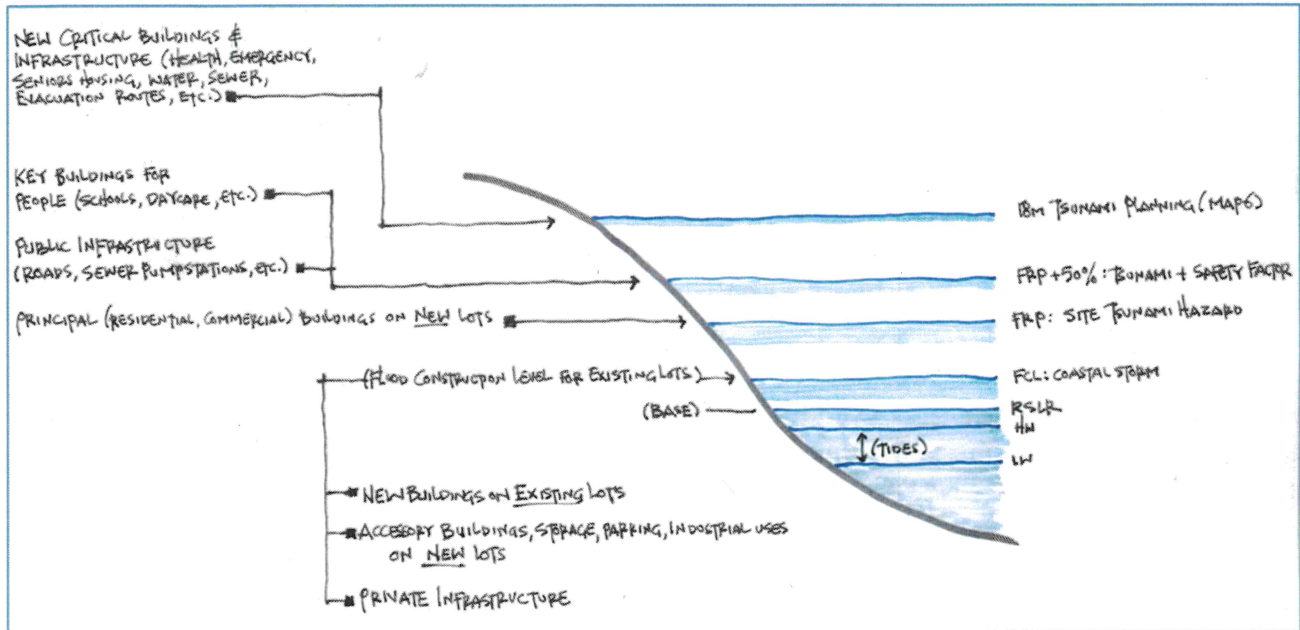 NEW CRITICAL BUILDINGS &
INFRASTRUCTURE (HEALTH, EMERGENCY,
SENIORS HOUSING, WATER, SEWER,
EVACUATION ROUTES, ETC.)
KEY BUILDINGS FOR
PEOPLE (SCHOOLS, DAYCARE, ETC.)
PUBLIC INFRASTRUCTURE
(ROADS, SEWER PUMPSTATIONS, ETC.)
PRINCIPAL (RESIDENTIAL, COMMERCIAL) BUILDINGS ON NEW LOTS
(FLOOD CONSTRUCTION LEVEL FOR EXISTING LOTS)
(BASE)
NEW BUILDINGS ON EXISTING LOTS
ACCESSORY BUILDINGS, STORAGE, PARKING, INDUSTRIAL USES
ON NEW LOTS
PRIVATE INFRASTRUCTURE
TSUNAMI PLANNING (MAPS)
FRP +50%: TSUNAMI + SAFETY FACTOR
FRP: SITE TSUNAMI HAZARD
FCL: COASTAL STORM
RSLR
HW
(TIDES)
LW